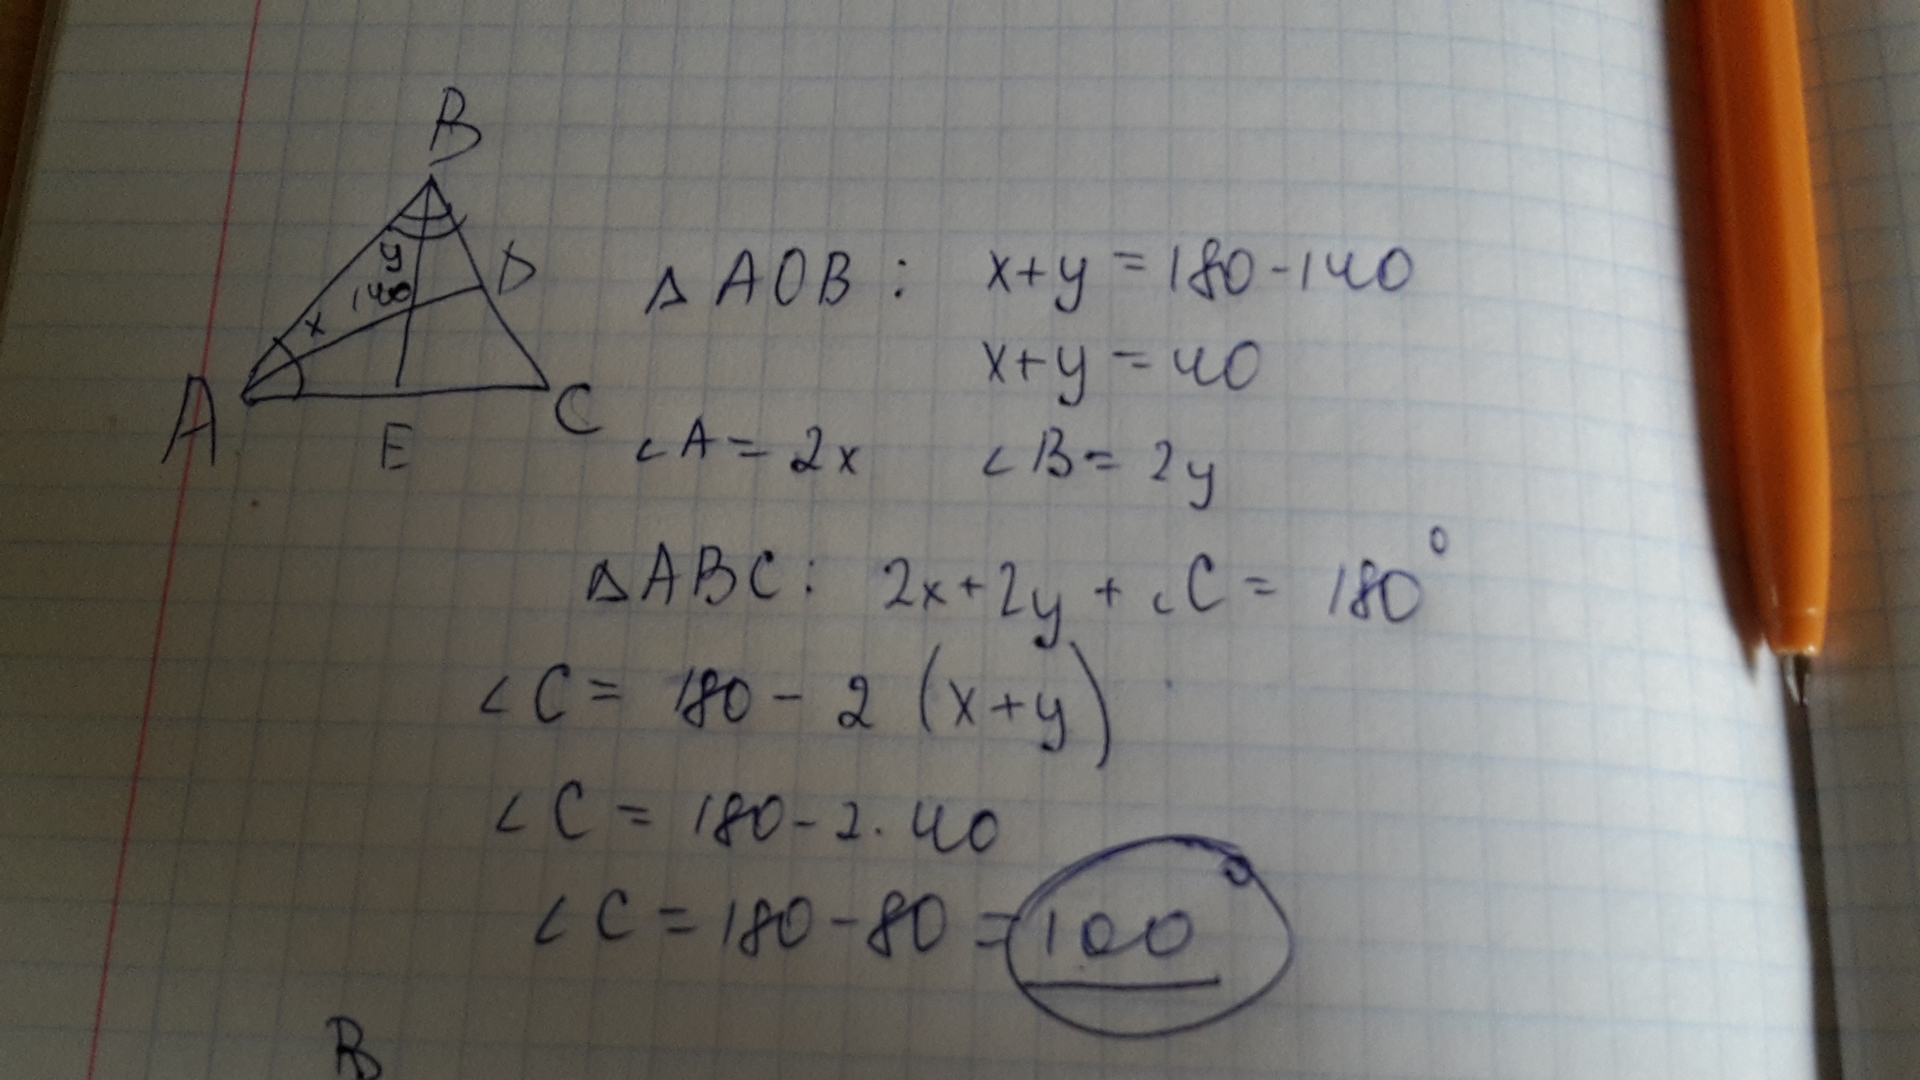 B
y
D
140
x
A
E
C
Δ AOB : x+y = 180-140
x+y = 40
∠A = 2x ∠B = 2y
ΔABC: 2x+2y + ∠C = 180°
∠C = 180 - 2 (x+y)
∠C = 180 - 2 · 40
∠C = 180 - 80 = 100°
B